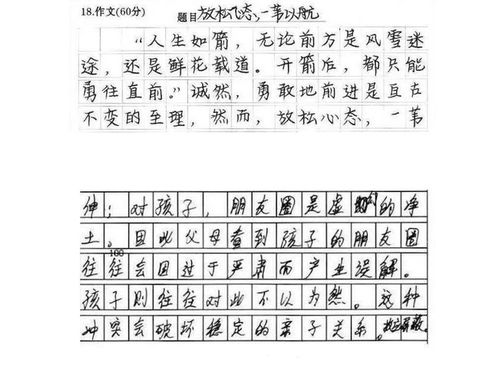 18.作文(60分) 题目 放松心态,一苇以航
“人生如箭,无论前方是风雪迷
途,还是鲜花载道。开箭后,都只能
勇往直前。”诚然,勇敢地前进是亘古
不变的至理,然而,放松心态,一苇
伸;对孩子,朋友圈是虚拟的净
土。因此父母看到孩子的朋友圈
100
往往会因过于严肃而产生误解。
孩子则往往对此不以为然。这种
冲突会破坏稳定的亲子关系。